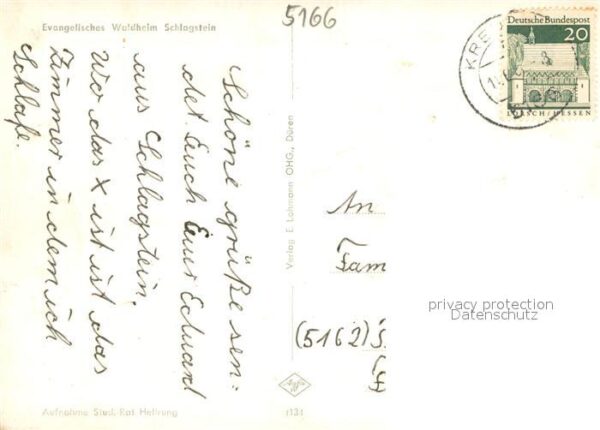 5166
Evangelisches Waldheim Schlagstein
Schöne grüße sen-
det Euch Euer Eduard
aus Schlagstein.
Wo das X ist ist das
Zimmer in dem ich
Schlafe.
Verlag E. Lohmann OHG., Düren
Aufnahme Stud.-Rat Hellrung
An
Fam
(5162)
Agfa
Deutsche Bundespost
20
LORSCH/HESSEN
KRE
privacy protection
Datenschutz